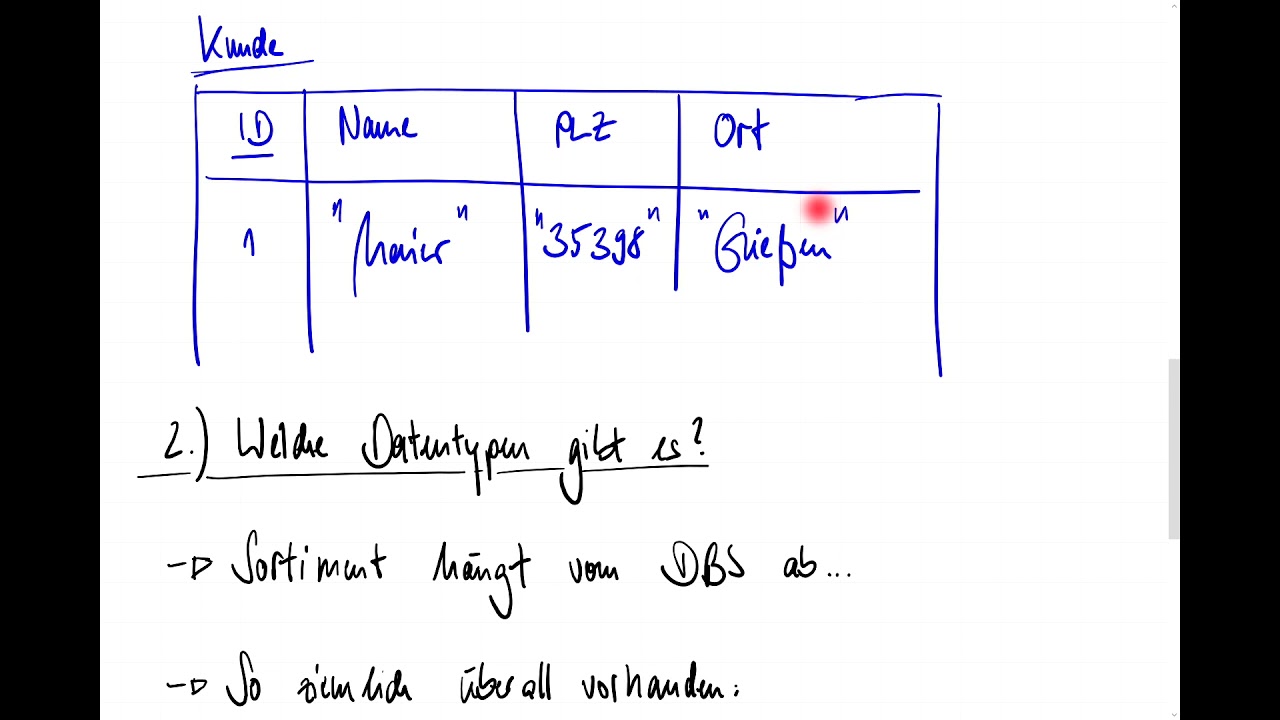 Kunde
ID Name PLZ Ort
1 "Maier" "35398" "Gießen"
2.) Welche Datentypen gibt es?
-> Sortiment hängt vom DBS ab...
-> So ziemlich überall vorhanden: